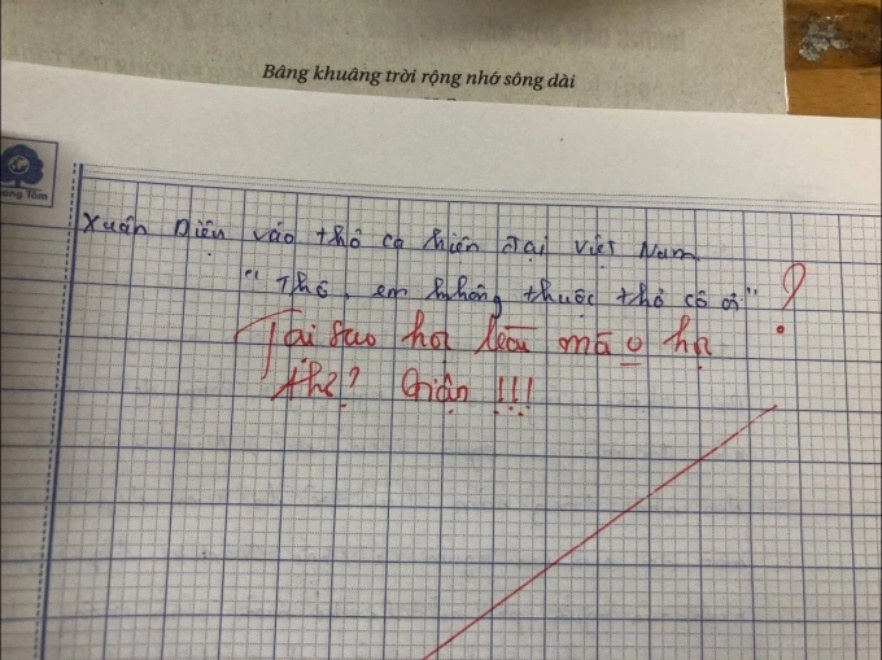 Bâng khuâng trời rộng nhớ sông dài
ang Tâm
Xuân Diệu vào thơ ca hiện đại Việt Nam.
"Thơ, em không thuộc thơ cô ơi" ?
Tại sao họ lại mà o họ
thế? Giận !!!